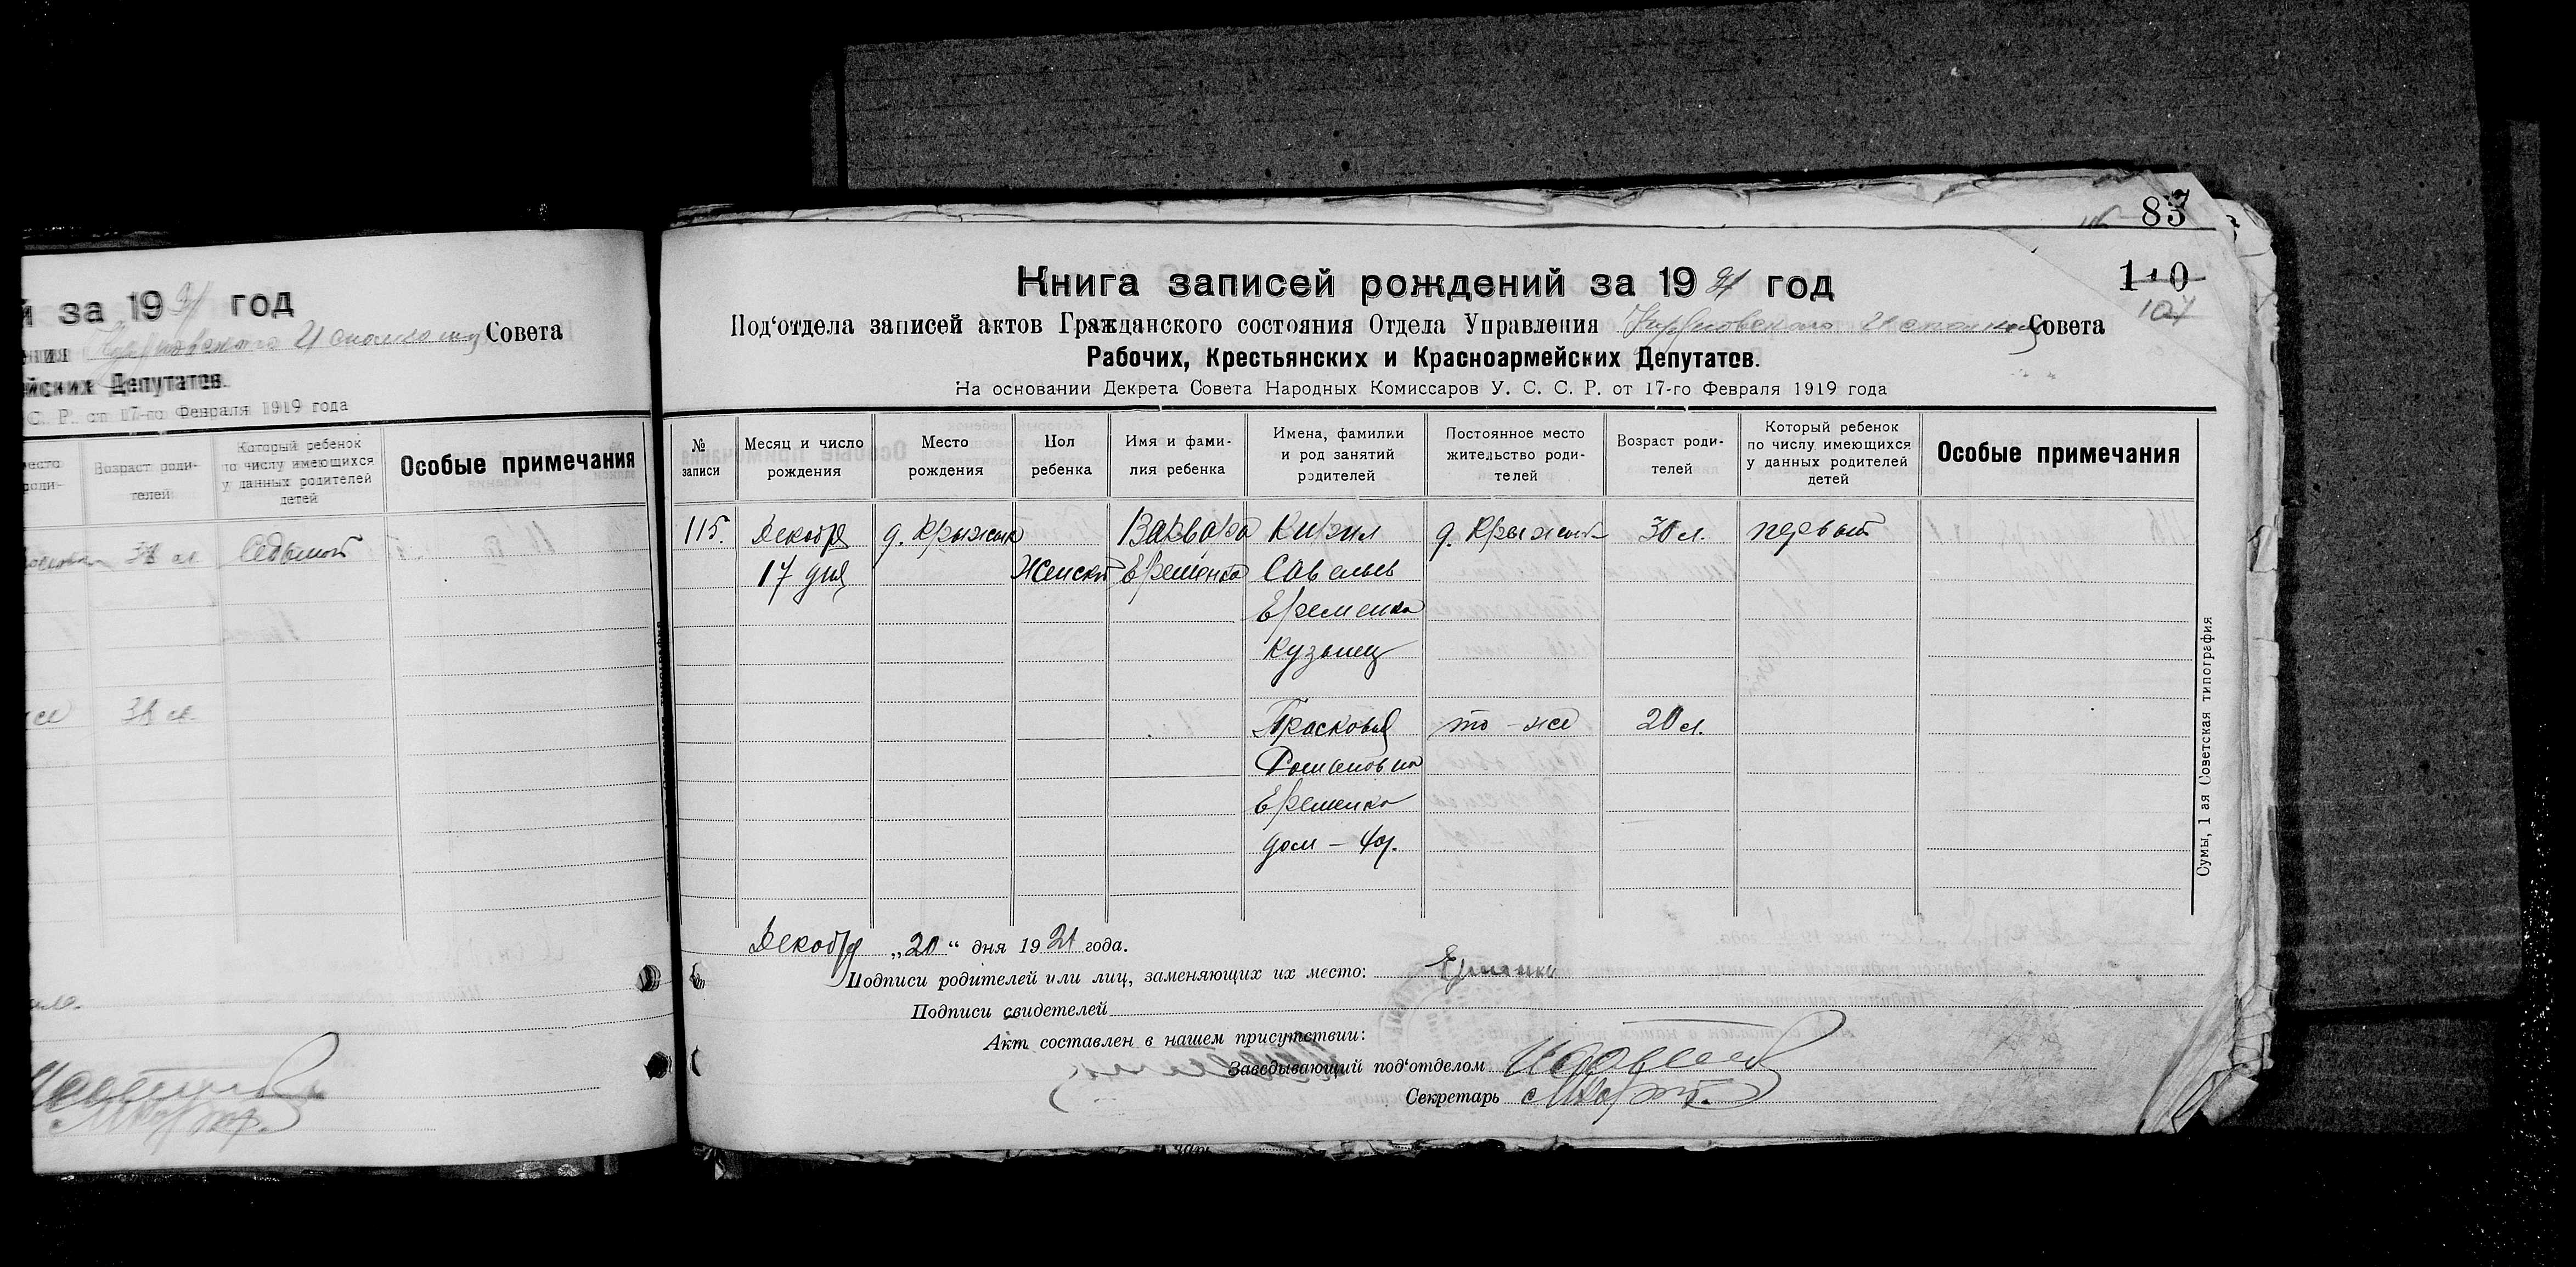 й за 1921 год
Совета
ейских Депутатов.
С. Р. от 17-го Февраля 1919 года
Возраст роди-
телей
Который ребенок
по числу имеющихся
у данных родителей
детей
Особые примечания
38 л. Седьмой
38 л.
87
110
107
Книга записей рождений за 1921 год
Под‘отдела записей актов Гражданского состояния Отдела Управления Совета
Рабочих, Крестьянских и Красноармейских Депутатов.
На основании Декрета Совета Народных Комиссаров У. С. С. Р. от 17-го Февраля 1919 года
№
записи
Месяц и число
рождения
Место
рождения
Пол
ребенка
Имя и фами-
лия ребенка
Имена, фамилии
и род занятий
родителей
Постоянное место
жительство роди-
телей
Возраст роди-
телей
Который ребенок
по числу имеющихся
у данных родителей
детей
Особые примечания
115. Декабря д. Крыжик Варвара Кирил д. Крыжик 30 л. первый
17 дня Женский Еременко Савельев
Еременко
Кузнец
Прасковья то-же 20 л.
Романовна
Еременко
дом-
Декабря „20“ дня 1921 года.
Подписи родителей или лиц, заменяющих их место:
Подписи свидетелей
Акт составлен в нашем присутствии:
Заведывающий под‘отделом
Секретарь
Сумы, 1 ая Советская типография